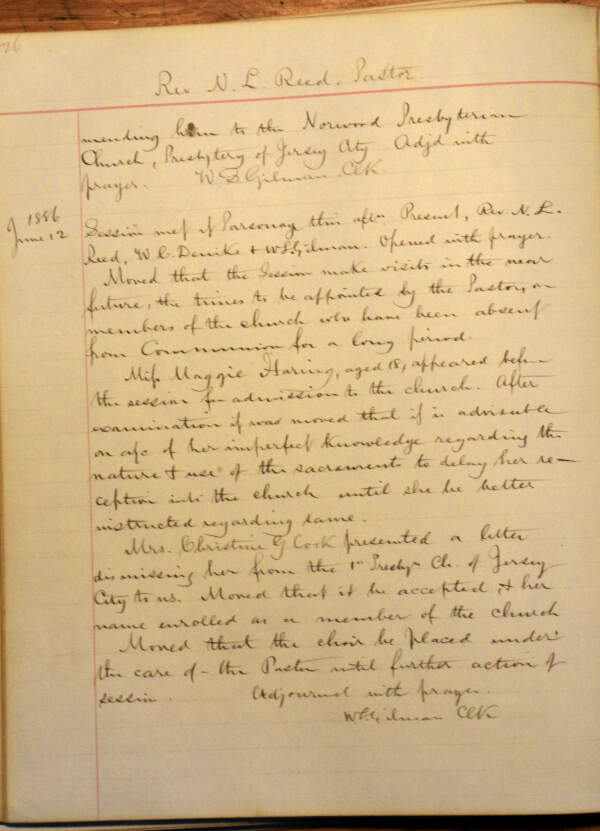 26
Rev. N. L. Reed, Pastor
mending him to the Norwood Presbyterian
Church, Presbytery of Jersey City Adjd with
prayer. W. S. Gilman Clk
1886
June 12
Session met at Parsonage this aftn. Present, Rev. N. L.
Reed, W. C. Denike & W. S. Gilman. Opened with prayer.
Moved that the Session make visits in the near
future, the times to be appointed by the Pastor, on
members of the church who have been absent
from Communion for a long period.
Miss Maggie Haring, aged 18, appeared before
the session for admission to the church. After
examination it was moved that it is advisable
on a/c of her imperfect knowledge regarding the
nature & use of the sacraments to delay her re-
ception into the church until she be better
instructed regarding same.
Mrs. Christine G Cook presented a letter
dismissing her from the 1st Presbyn Ch. of Jersey
City to us. Moved that it be accepted, & her
name enrolled as a member of the church
Moved that the choir be placed under
the care of the Pastor until further action of
session. Adjourned with prayer.
W. S. Gilman Clk